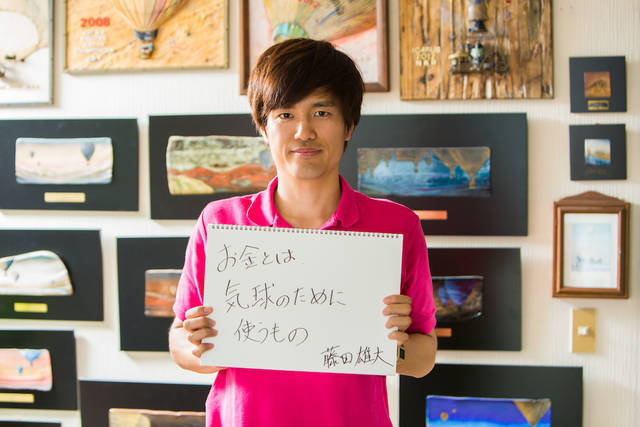 2008
お金とは
気球のために
使うもの
藤田雄大